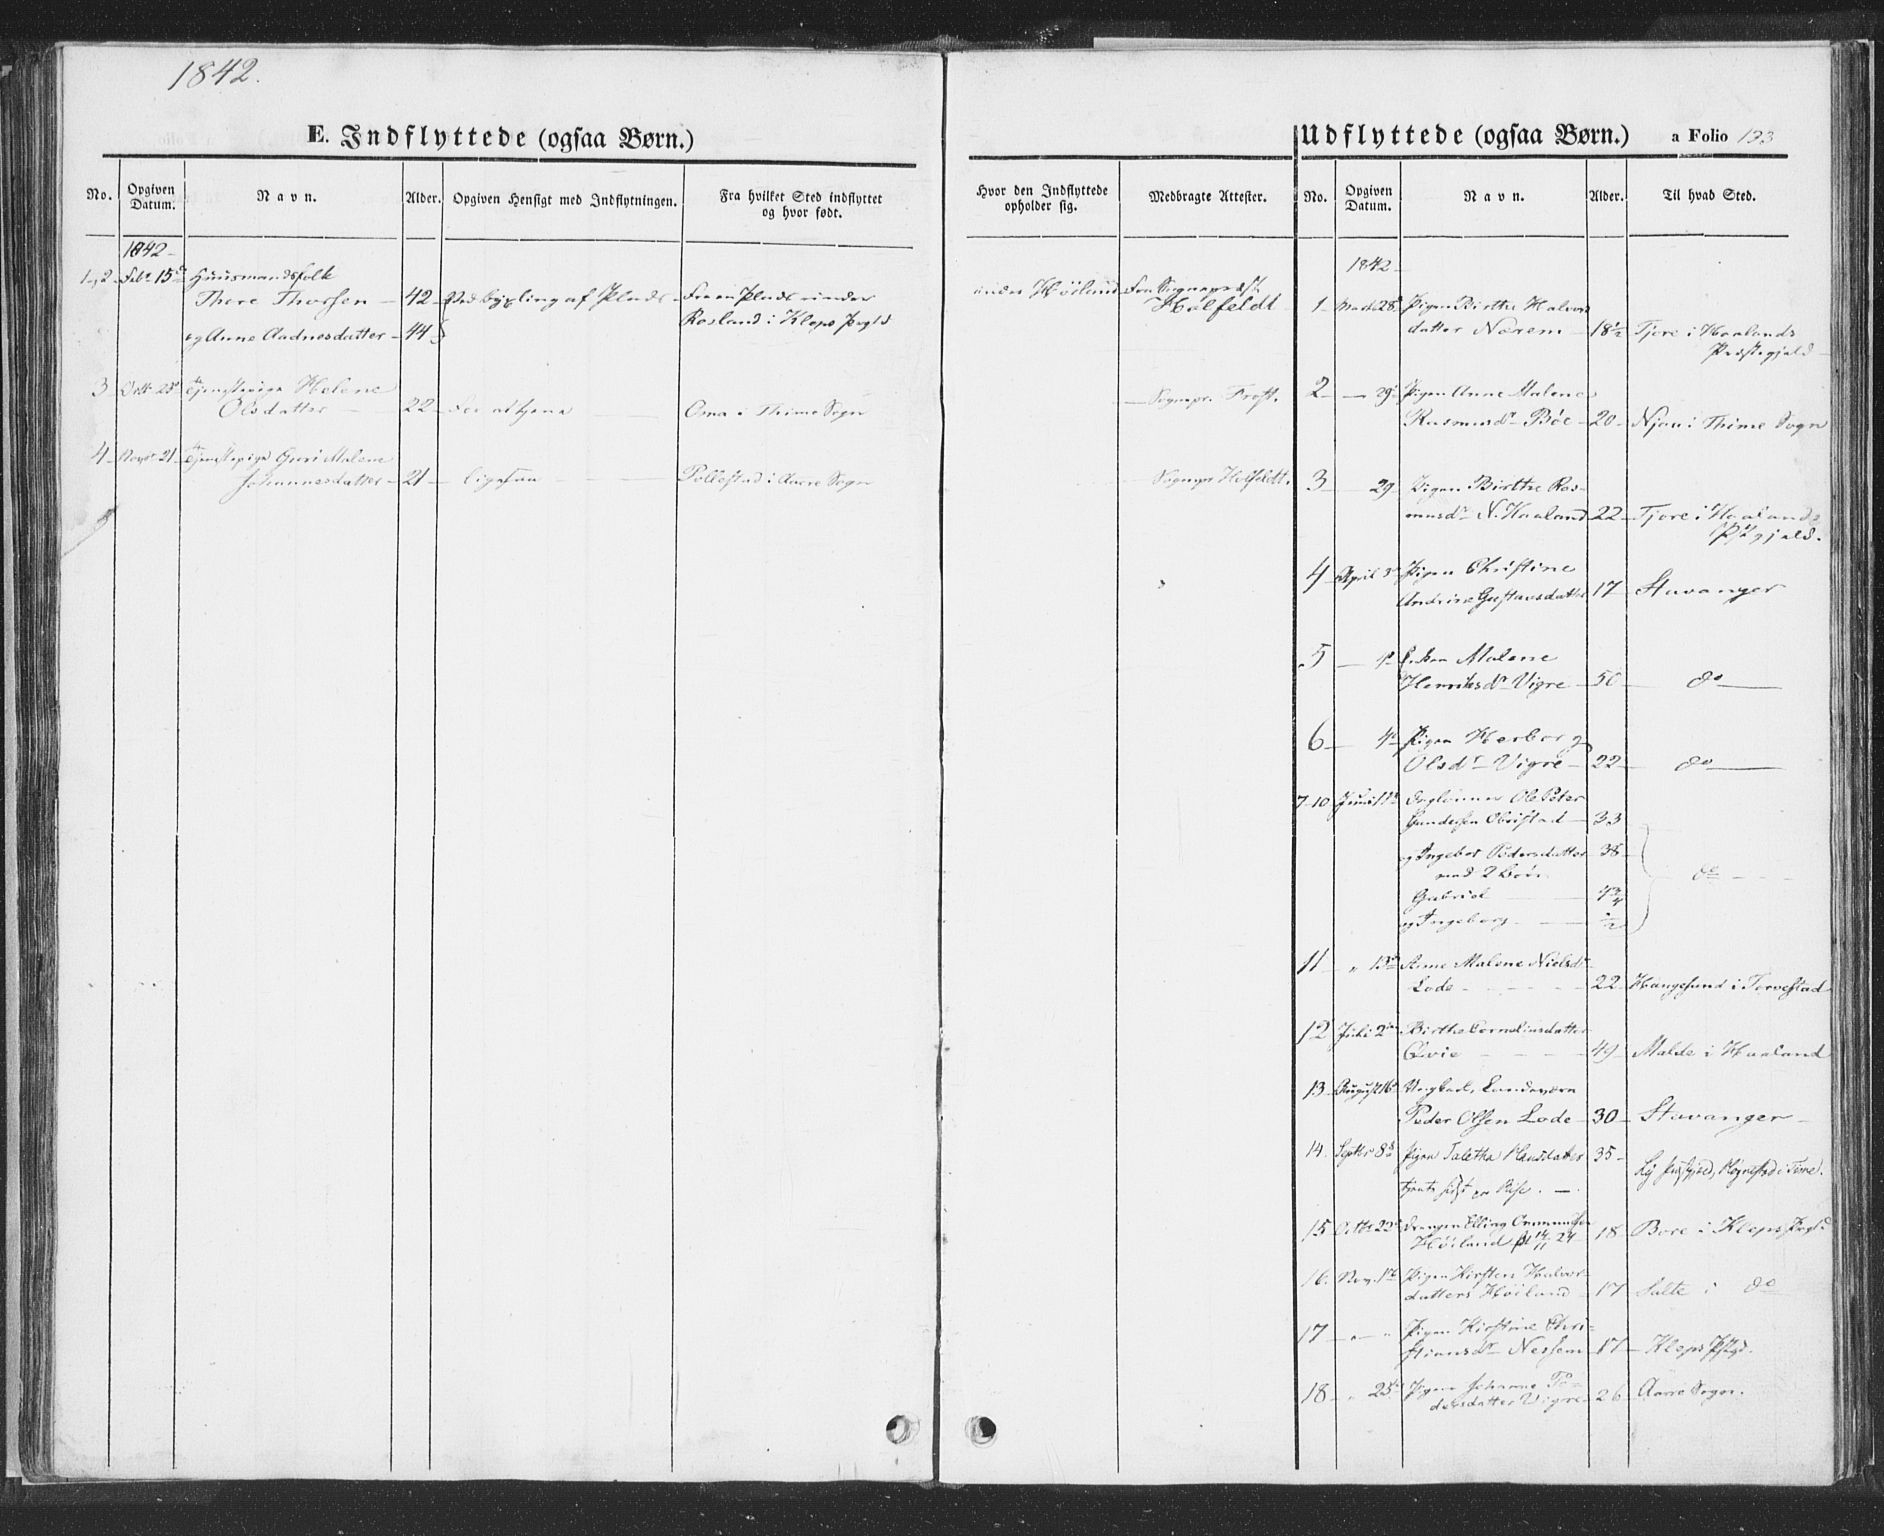 1842.
E. Indflyttede (ogsaa Børn.)
No.
Opgiven Datum.
Navn.
Alder.
Opgiven Hensigt med Indflytningen.
Fra hvilket Sted indflyttet og hvor født.
Hvor den Indflyttede opholder sig.
Medbragte Attester.
1842
1-2 Febr 15de Huusmandsfolk
Thore Thorsen 42 Ved byxling af Plads Fra en Plads under under Höiland Fra Sognepræst
og Anne Aadnesdatter 44 Rosland i Kleps Pregld Hølfeldt
3 Octbr 23d Tjenestepige Helene
Olsdatter 22 For at tjene Oma i Thime Sogn Sognepr. Frost.
4 Novbr 21 Tjenestepige Guri Malene
Johannesdatter 21 ligesaa Pollestad i Aarre Sogn Sognepr Hølfeldt.
Udflyttede (ogsaa Børn.)
a Folio 133
No.
Opgiven Datum.
Navn.
Alder.
Til hvad Sted.
1842
1 Marts 28d Pigen Birthe Halvors
datter Nærem 18½ Tjore i Haalands
Præstegjæld
2 29d Pigen Anne Malene
Rasmusdr Böe 20 Njaa i Thime Sogn
3 29 Pigen Birthe Ras-
musdr N. Haaland 22 Tjore i Haalands
Pstgjæld.
4 April 3d Pigen Christine
Andrine Gustavsdatter 17 Stavanger
5 4d Enken Malene
Henriksdr Vigre 50 do
6 4d Pigen Herborg
Olsdr Vigre 22 do
7-10 Juni Daglönner Ole Peter
Gundersen Obristad 33
og Ingebor Pedersdatter 38
med 2 Börn do
Gabriel 4¾
og Ingeborg ½
11 " 13d Anne Malene Nielsdr
Lode 22 Haugesund i Torvestad
12 Juli 2den Birthe Corneliusdatter
Qvie 49 Malde i Haaland
13 August 16d Ungkarl, Landeværn
Peder Olsen Lode 30 Stavanger
14. Septbr 8de Pigen Taletha Hansdatter 35
tjente sidst paa Risе.
15 Octbr 22d Drengen Elling Ommundsen
Höiland 14/11 24 18 Bore i Kleps Pregld
16. Nov. 1te Pigen Kirsten Halvor-
datters Höiland 17 Salte i do
17 " " Pigen Kirstine Chri-
stiansdr Nessem 17 Kleps Pstgd.
18 " 25de Pigen Johanne Pe-
dersdatter Vigre 26 Aarre Sogn.